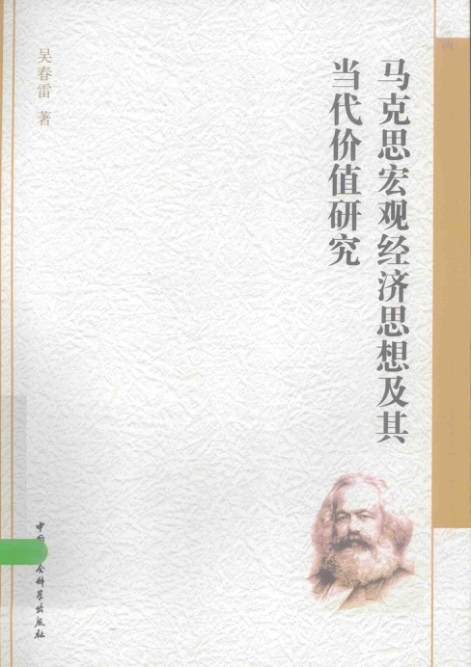 马克思宏观经济思想及其
当代价值研究
吴春雷 著
中国 会科学出版社